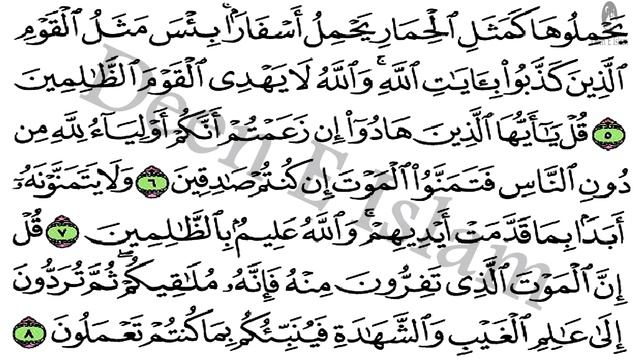 يَحْمِلُوهَا كَمَثَلِ ٱلْحِمَارِ يَحْمِلُ أَسْفَارًۢا ۚ بِئْسَ مَثَلُ ٱلْقَوْمِ
ٱلَّذِينَ كَذَّبُوا۟ بِـَٔايَٰتِ ٱللَّهِ ۚ وَٱللَّهُ لَا يَهْدِى ٱلْقَوْمَ ٱلظَّٰلِمِينَ
٥ قُلْ يَٰٓأَيُّهَا ٱلَّذِينَ هَادُوٓا۟ إِن زَعَمْتُمْ أَنَّكُمْ أَوْلِيَآءُ لِلَّهِ مِن
دُونِ ٱلنَّاسِ فَتَمَنَّوُا۟ ٱلْمَوْتَ إِن كُنتُمْ صَٰدِقِينَ ٦ وَلَا يَتَمَنَّوْنَهُۥٓ
أَبَدًۢا بِمَا قَدَّمَتْ أَيْدِيهِمْ ۚ وَٱللَّهُ عَلِيمٌۢ بِٱلظَّٰلِمِينَ ٧ قُلْ
إِنَّ ٱلْمَوْتَ ٱلَّذِى تَفِرُّونَ مِنْهُ فَإِنَّهُۥ مُلَٰقِيكُمْ ۖ ثُمَّ تُرَدُّونَ
إِلَىٰ عَٰلِمِ ٱلْغَيْبِ وَٱلشَّهَٰدَةِ فَيُنَبِّئُكُم بِمَا كُنتُمْ تَعْمَلُونَ ٨
Deen E Islam